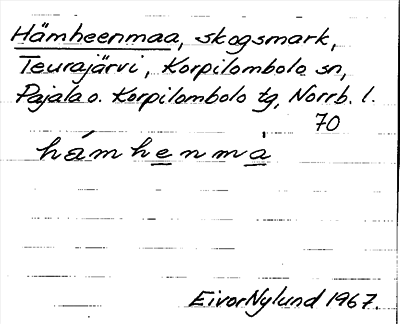 Hämheenmaa, skogsmark,
Teurajärvi, Korpilombolo sn,
Pajala o. Korpilombolo tg, Norrb. l.
70
hámhenmá
Eivor Nylund 1967.